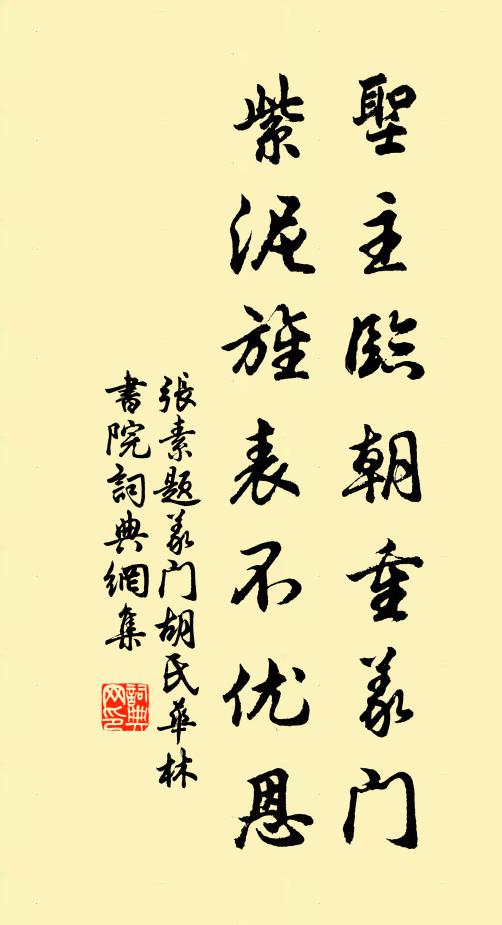 聖主臨朝重義门
紫泥旌表不优恩
張素题義门胡氏華林
書院詞典網集
詞典网印